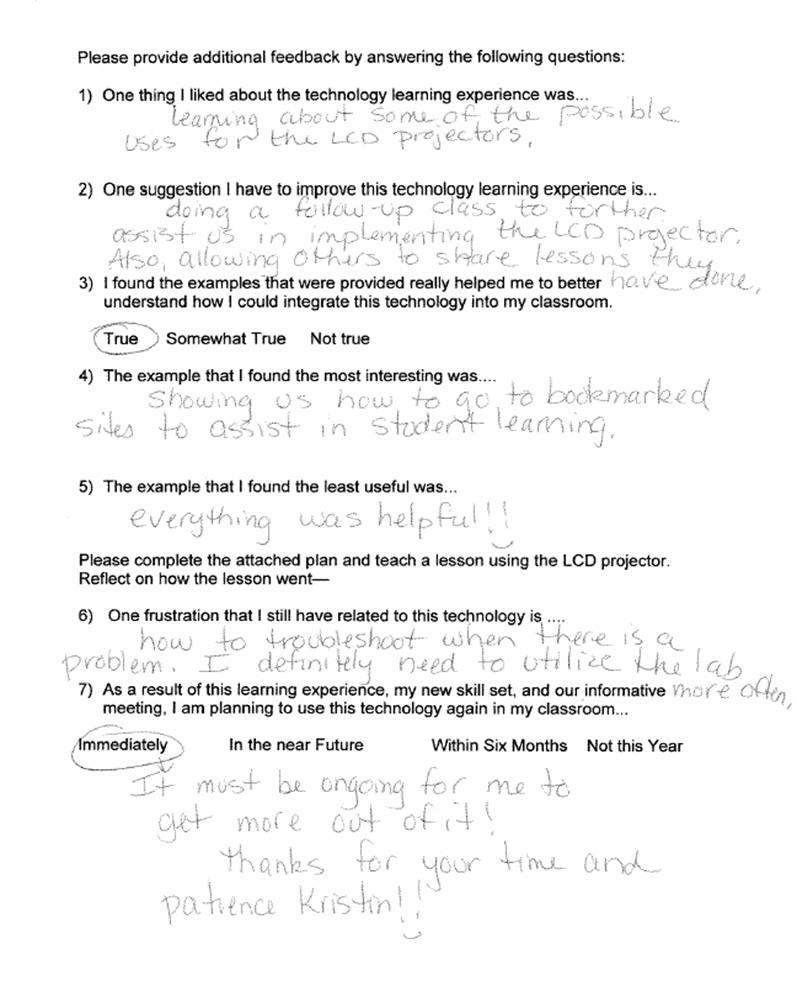 Please provide additional feedback by answering the following questions:
1) One thing I liked about the technology learning experience was...
learning about some of the possible
uses for the LCD projectors.
2) One suggestion I have to improve this technology learning experience is...
doing a follow-up class to further
assist us in implementing the LCD projector.
Also, allowing others to share lessons they
have done.
3) I found the examples that were provided really helped me to better
understand how I could integrate this technology into my classroom.
True Somewhat True Not true
4) The example that I found the most interesting was....
Showing us how to go to bookmarked
sites to assist in student learning.
5) The example that I found the least useful was...
everything was helpful!!
Please complete the attached plan and teach a lesson using the LCD projector.
Reflect on how the lesson went—
6) One frustration that I still have related to this technology is ....
how to troubleshoot when there is a
problem. I definitely need to utilize the lab
more often,
7) As a result of this learning experience, my new skill set, and our informative
meeting, I am planning to use this technology again in my classroom...
Immediately In the near Future Within Six Months Not this Year
It must be ongoing for me to
get more out of it!
Thanks for your time and
patience Kristin!!